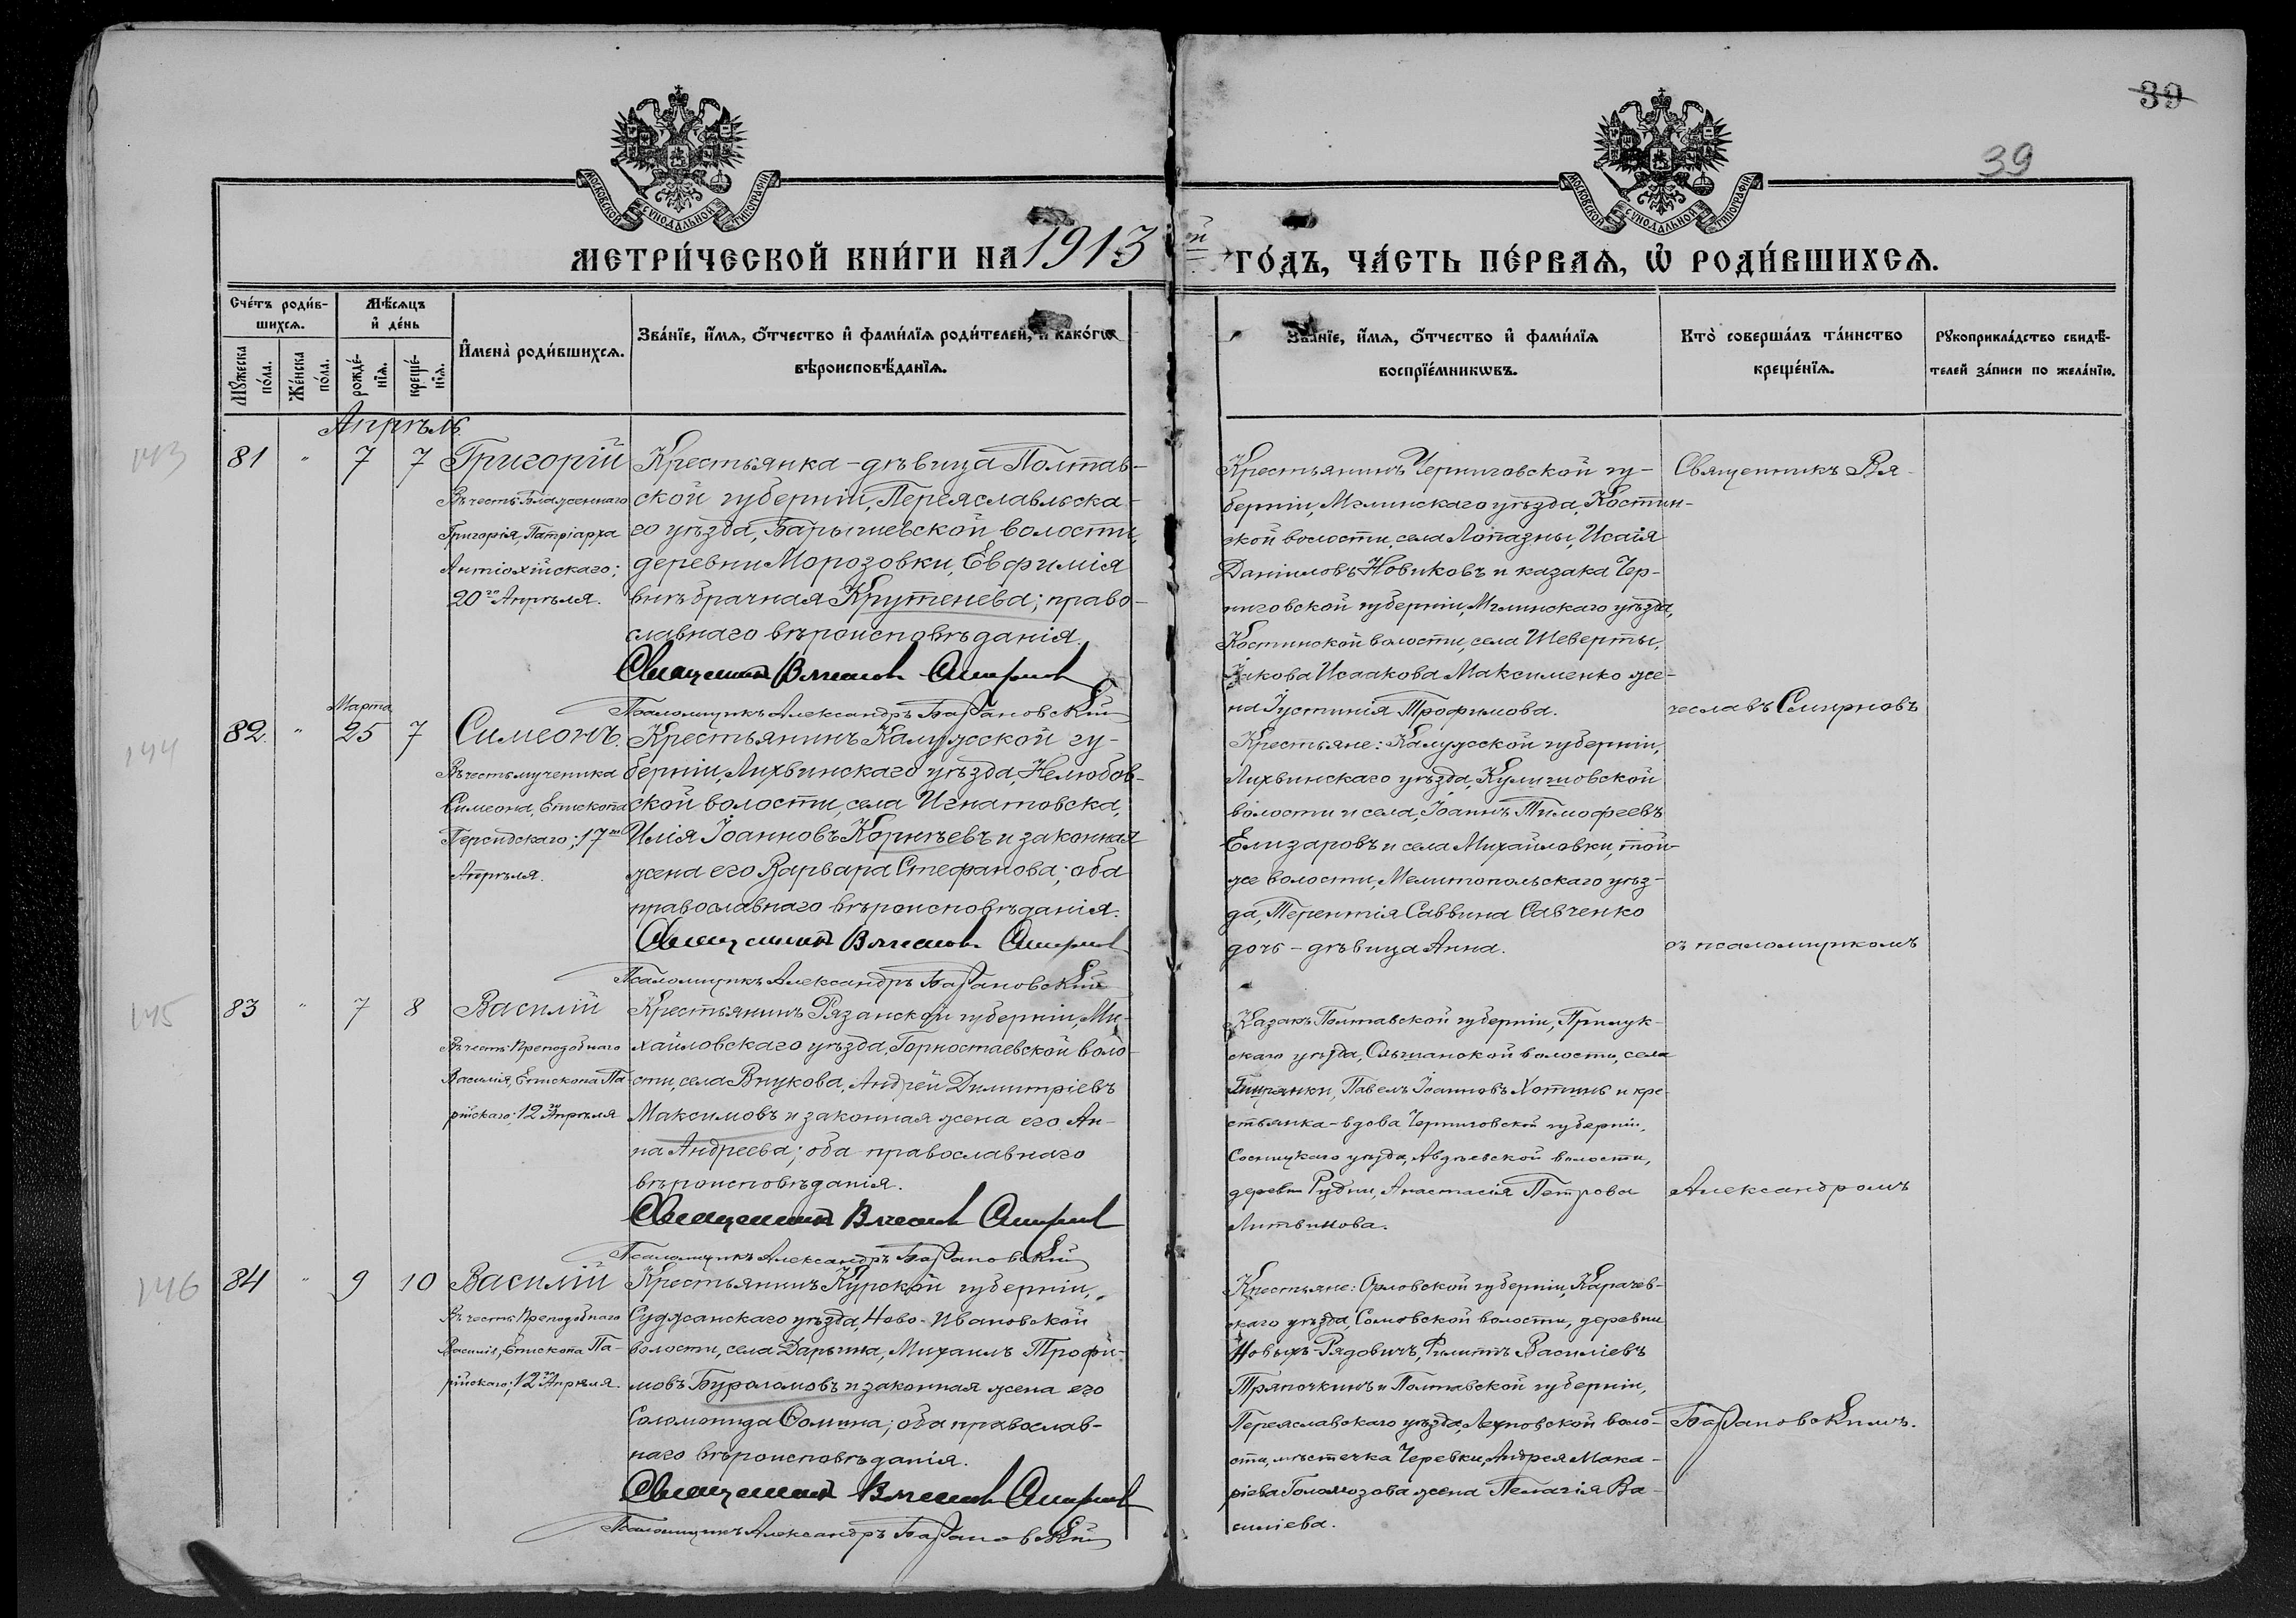 39
39
МОСКОВСКОЙ СѴНОДАЛЬНОЙ ТИПОГРАФІИ
МОСКОВСКОЙ СѴНОДАЛЬНОЙ ТИПОГРАФІИ
МЕТРИ́ЧЕСКОЙ КНИ́ГИ НА 1913 й ГО́ДЪ, ЧА́СТЬ ПЕ́РВАѦ, Ѽ РОДИ́ВШИХСѦ.
Сче́тъ роди́в-
шихсѧ.
Мѣ́сѧцъ
и҆ де́нь
Мꙋ́жеска по́ла.
Же́нска по́ла.
рожде́-
нїѧ.
креще́-
нїѧ.
И҆мена̀ роди́вшихсѧ.
Зва́нїе, и҆́мѧ, ѻ҆́тчество и҆ фами́лїѧ роди́телей, и҆ како́гѡ
вѣроисповѣ́данїѧ.
Зва́нїе, и҆́мѧ, ѻ҆́тчество и҆ фами́лїѧ
воспрїе́мникѡвъ.
Кто̀ соверша́лъ та́инство
креще́нїѧ.
Рꙋкоприкла́дство свидѣ́-
телей за́писи по жела́нїю.
Апрѣль
143
81 " 7 7
Григорій
Въ честь Блаженнаго
Григорія, Патріарха
Антіохійскаго;
20го Апрѣля.
Крестьянка-дѣвица Полтав-
ской губерніи, Переяславльска-
го уѣзда, Барышевской волости,
деревни Морозовки, Евфимія
внѣбрачная Крутенева; право-
славнаго вѣроисповѣданія.
Священникъ Вячеславъ Смирновъ
Псаломщикъ Александръ Барановскій
Крестьянинъ Черниговской гу-
берніи, Мглинскаго уѣзда, Костин-
ской волости, села Лопазны, Исаія
Даніиловъ Новиковъ и казака Чер-
ниговской губерніи, Мглинскаго уѣзда,
Костинской волости, села Шеверты,
Іакова Исаакова Максименко же-
на Іустинія Трофимова.
Священникъ Вя-
чеславъ Смирновъ
144
Марта
82 " 25 7
Симеонъ.
Въ честь мученика
Симеона, Епископа
Персидскаго; 17го
Апрѣля.
Крестьянинъ Калужской гу-
берніи, Лихвинскаго уѣзда, Нелюбов-
ской волости, села Игнатовска,
Илія Іоанновъ Корнѣевъ и законная
жена его Варвара Стефанова; оба
православнаго вѣроисповѣданія.
Священникъ Вячеславъ Смирновъ
Псаломщикъ Александръ Барановскій
Крестьяне: Калужской губерніи,
Лихвинскаго уѣзда, Кулешовской
волости и села, Іоаннъ Тимофеевъ
Елизаровъ и села Михайловки, той-
же волости, Мелитопольскаго уѣз-
да, Терентія Саввина Савченко
дочь-дѣвица Анна.
съ псаломщикомъ
145
83 " 7 8
Василій
Въ честь Преподобнаго
Василія, Епископа Па-
рійскаго; 12го Апрѣля
Крестьянинъ Рязанской губерніи, Ми-
хайловскаго уѣзда, Горностаевской воло-
сти, села Внукова, Андрей Димитріевъ
Максимовъ и законная жена его Ан-
на Андреева; оба православнаго
вѣроисповѣданія.
Священникъ Вячеславъ Смирновъ
Псаломщикъ Александръ Барановскій
Казакъ Полтавской губерніи, Прилук-
скаго уѣзда, Ольшанской волости, села
Павелъ Іоанновъ Хотинъ и кре-
стьянка-вдова Черниговской губерніи,
Сосницкаго уѣзда, Авдѣевской волости,
деревни Рудни, Анастасія Петрова
Литвинова.
Александромъ
146
84 " 9 10
Василій
Въ честь Преподобнаго
Василія, Епископа Па-
рійскаго; 12го Апрѣля.
Крестьянинъ Курской губерніи,
Суджанскаго уѣзда, Ново-Ивановской
волости, села Дарьина, Михаилъ Трофи-
мовъ Буроломовъ и законная жена его
Соломонида Фомина; оба православ-
наго вѣроисповѣданія.
Священникъ Вячеславъ Смирновъ
Псаломщикъ Александръ Барановскій
Крестьяне: Орловской губерніи, Карачев-
скаго уѣзда, Сомовской волости, деревни
Новыхъ-Рядовичъ, Филиппъ Василіевъ
Тряпочкинъ и Полтавской губерніи,
Переяславскаго уѣзда, воло-
сти, мѣстечка Черевки, Андрея Мака-
ріева Голомозова жена Пелагія Ва-
силіева.
Барановскимъ.